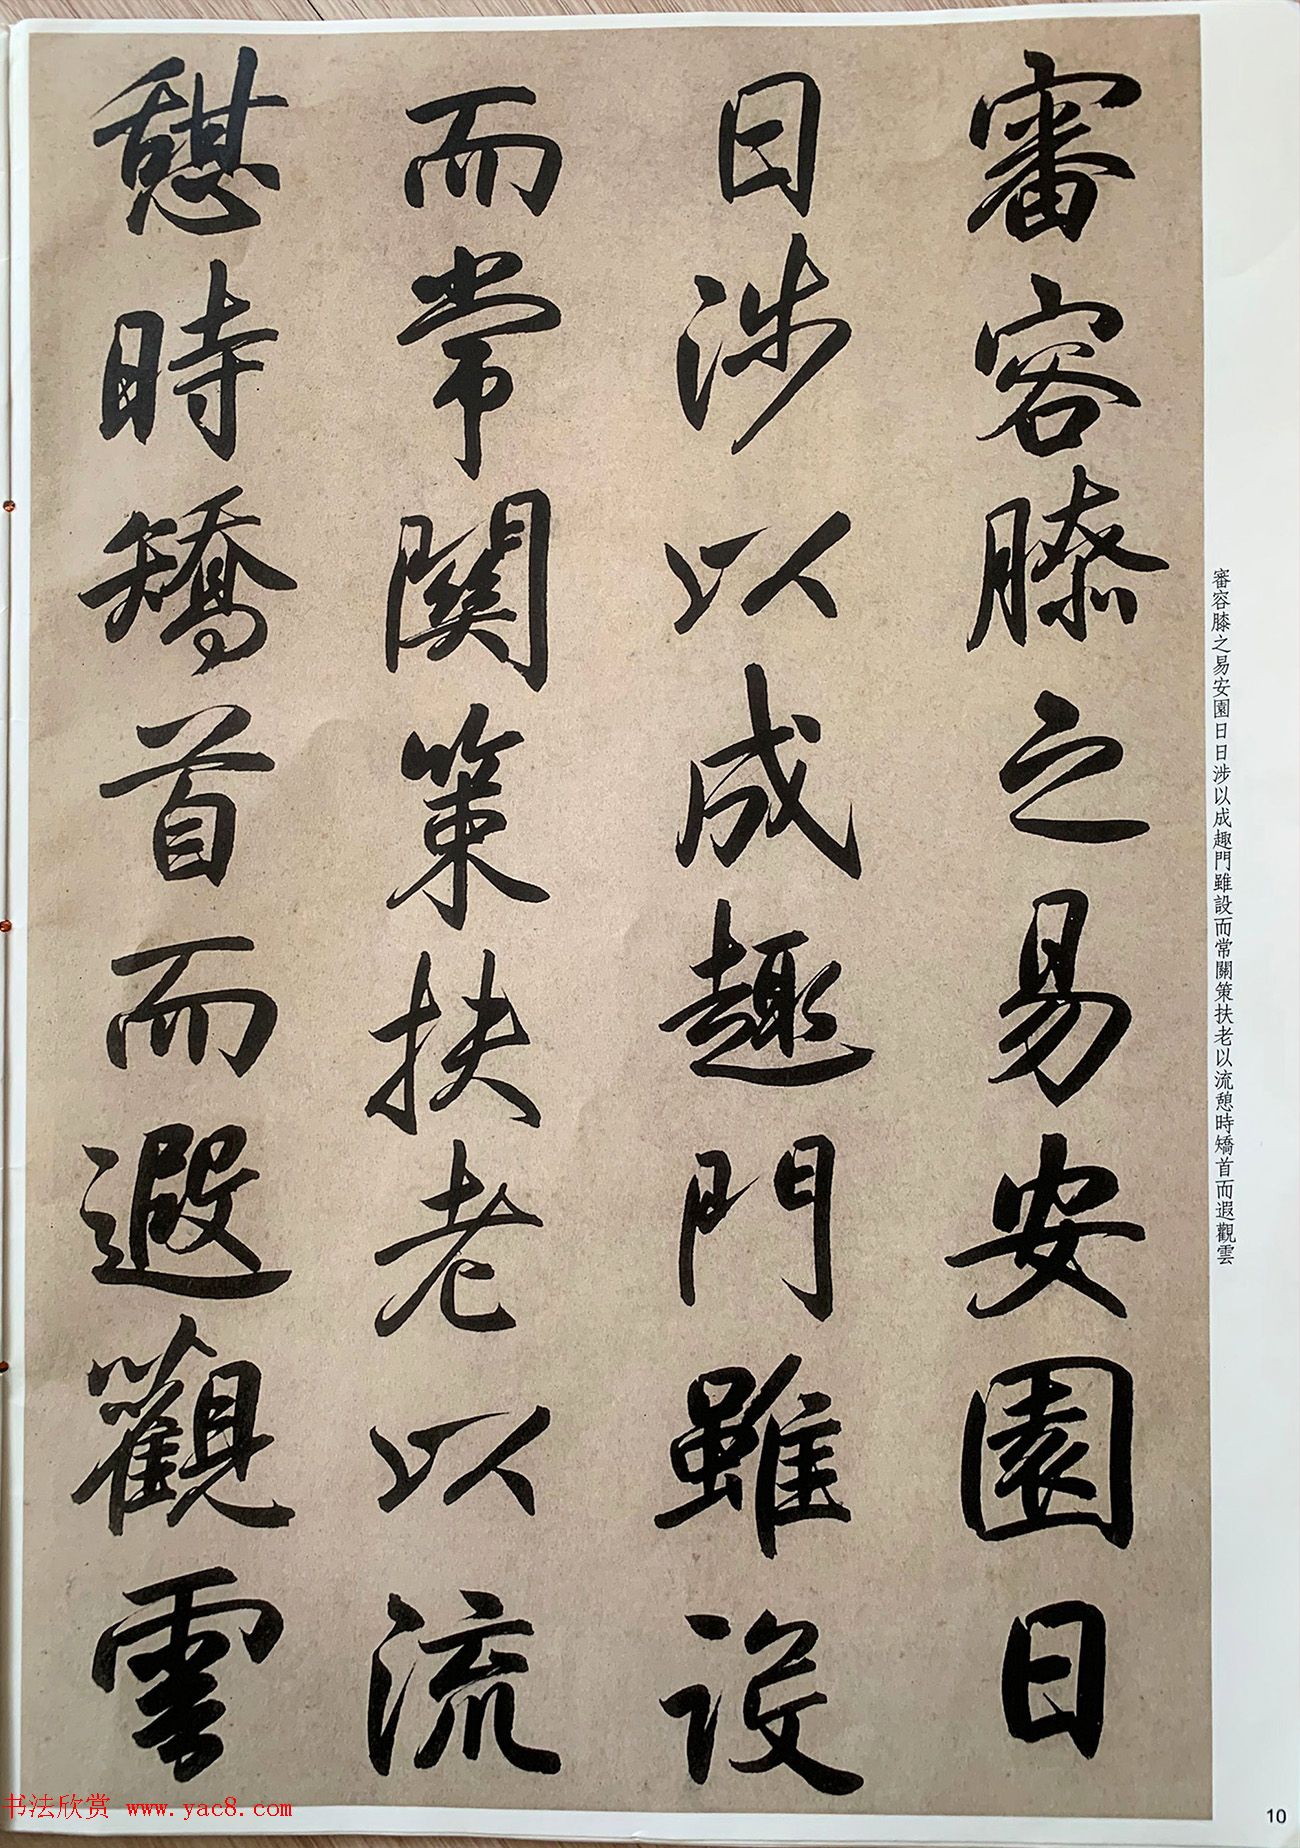 審容膝之易安園日
日涉以成趣門雖設
而常關策扶老以流
憇時矯首而遐觀雲
審容膝之易安園日日涉以成趣門雖設而常關策扶老以流憩時矯首而遐觀雲
书法欣赏 www.yac8.com
10